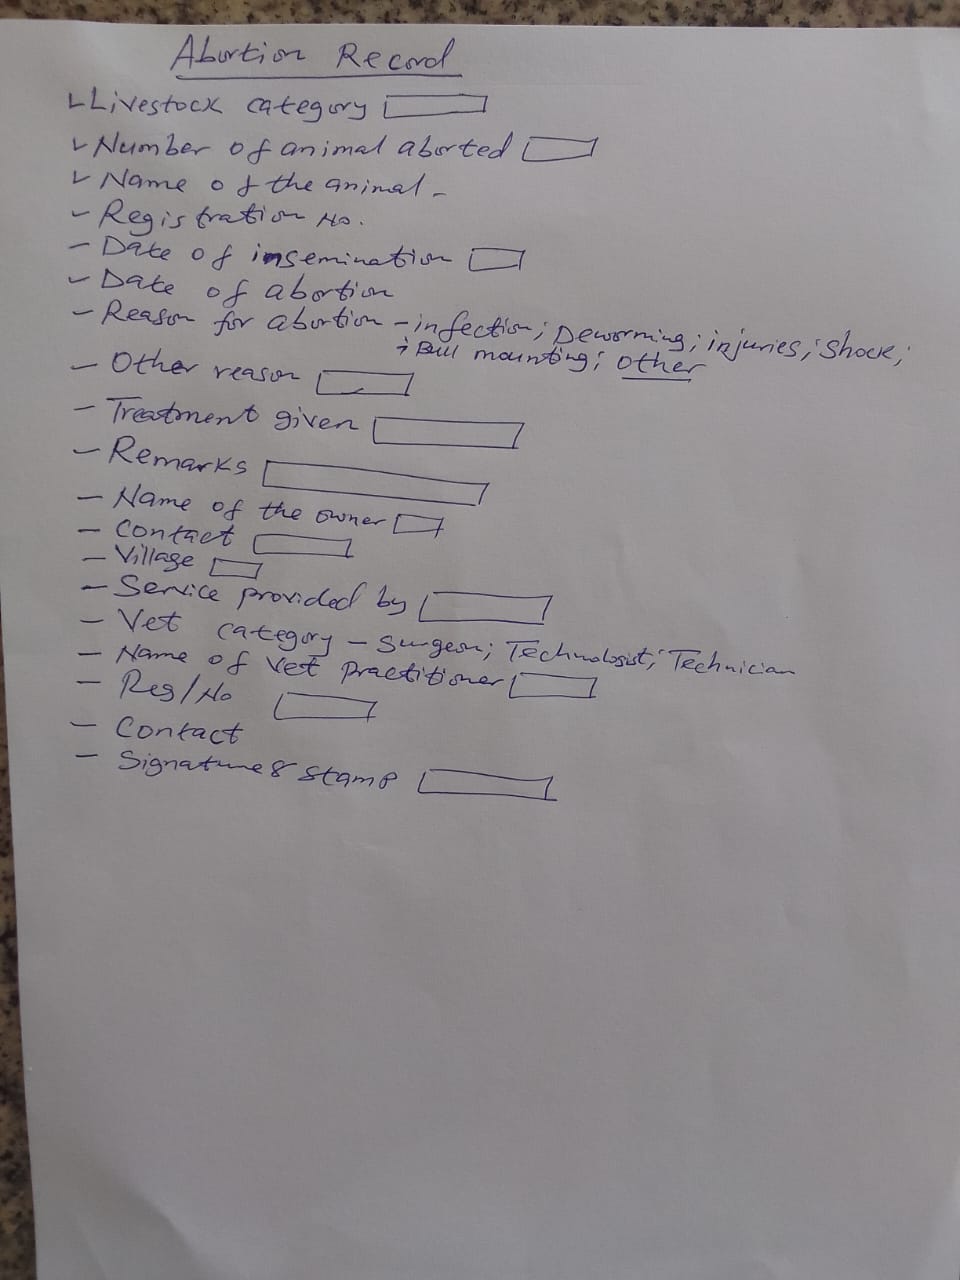 Abortion Record
Livestock category
Number of animal aborted
Name of the animal -
- Registration No.
- Date of insemination
- Date of abortion
- Reason for abortion - infection; Deworming; injuries; Shock;
; Bull mounting; other
- Other reason
- Treatment given
- Remarks
- Name of the owner
- Contact
- Village
- Service provided by
- Vet category - Surgeon; Technologist; Technician
- Name of Vet Practitioner
- Reg/No
- Contact
- Signature & stamp